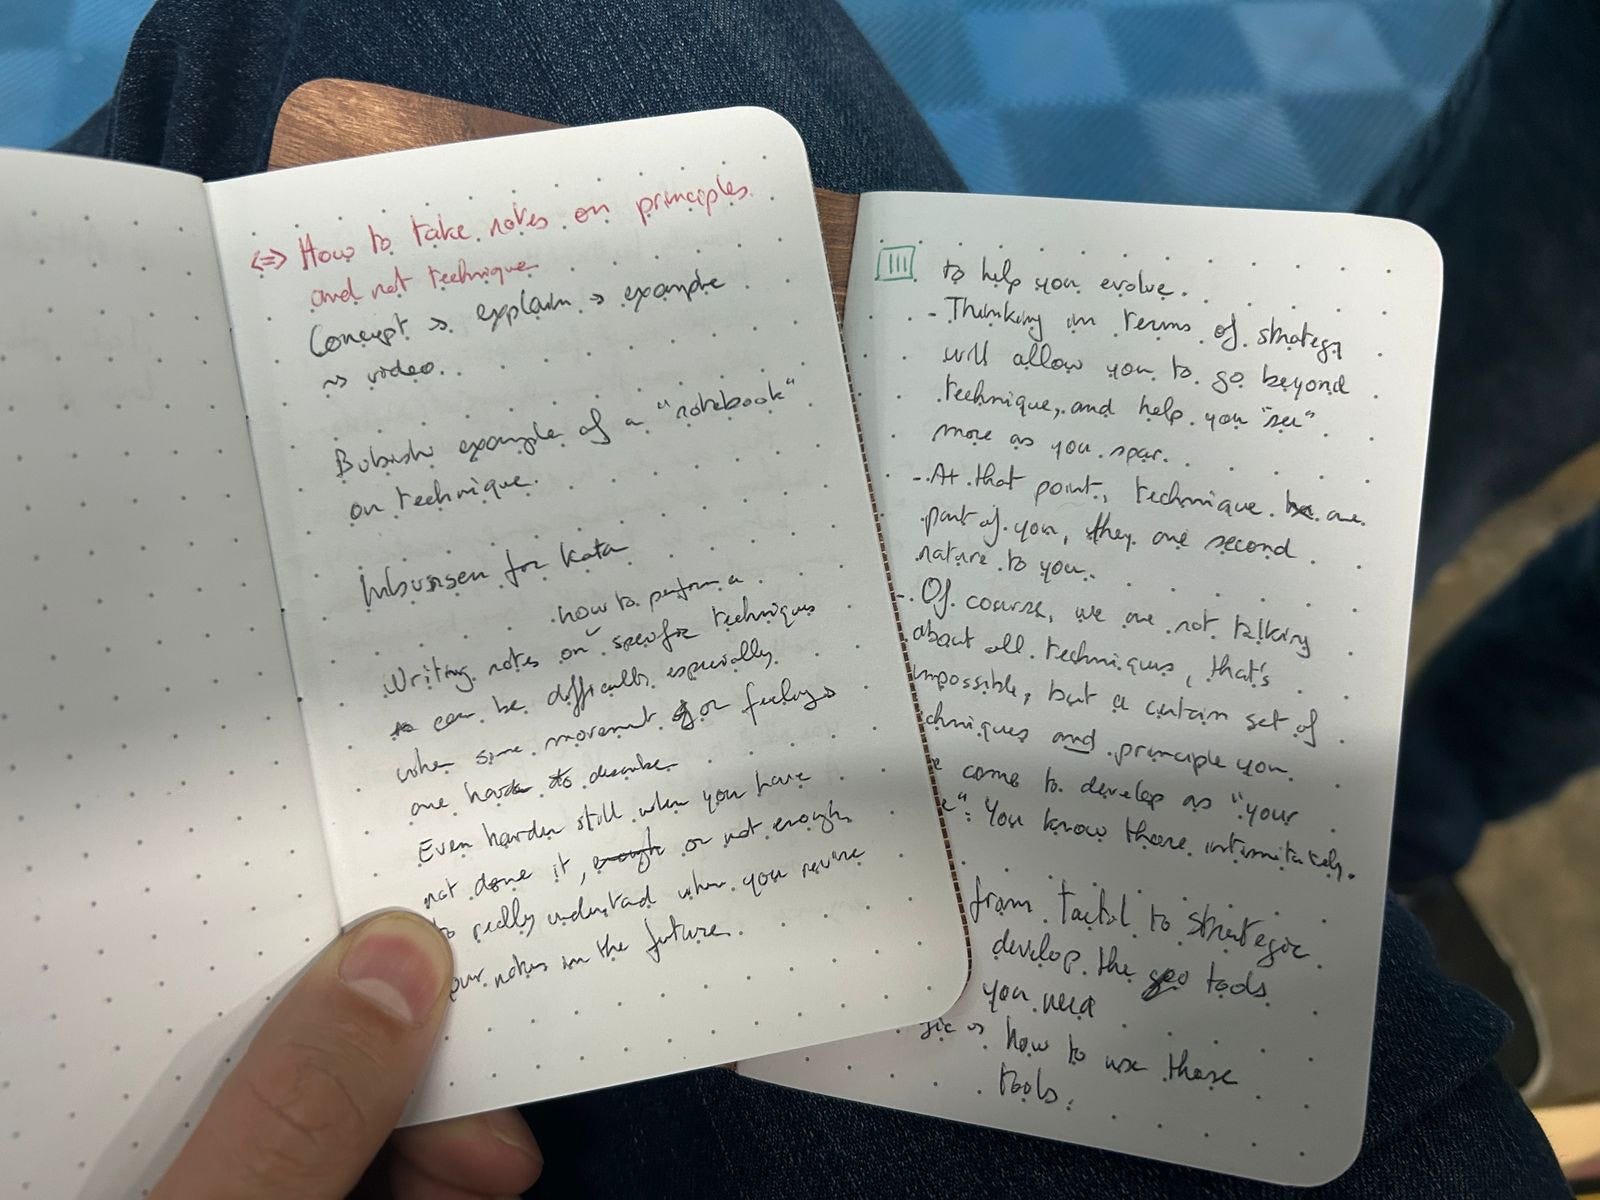 <=> How to take notes on principles
and not technique
Concept → explain → example
→ video.
Bubishi example of a "notebook"
on technique.
for kata
how to perform a
Writing notes on specific techniques
can be difficult, especially
when some movement or feelings
are hard to describe
Even harder still when you have
not done it, enough or not enough
to really understand when you review
your notes in the future.
III to help you evolve.
- Thinking in terms of strategy
will allow you to go beyond
technique, and help you "see"
more as you spar.
- At that point, technique are
part of you, they are second
nature to you.
- Of course, we are not talking
about all techniques, that's
impossible, but a certain set of
chniques and principle you
e come to develop as "your
e". You know those intimitately.
from tactical to strategic
develop the tools
you need
gic → how to use those
tools.